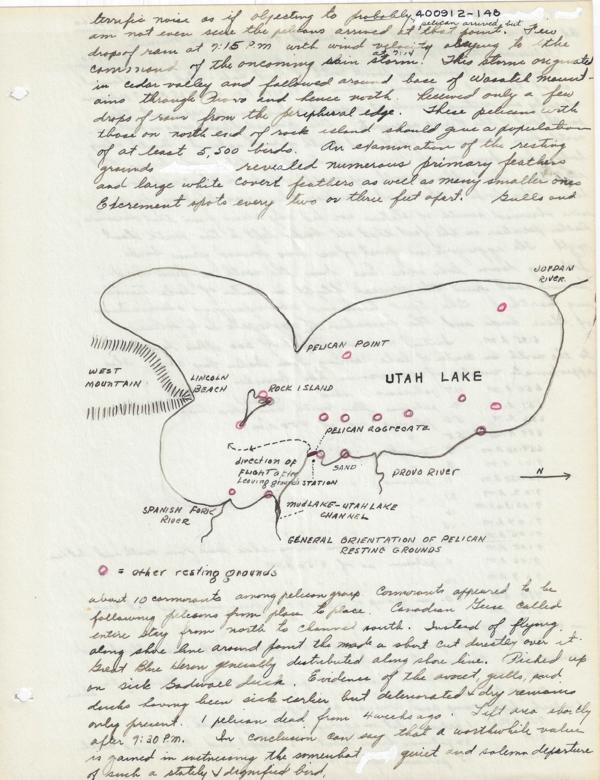 terrific noise as if objecting to probably 400912-146
pelican arrived, but
am not even sure the pelicans arrived at that point. Few
drops of rain at 7:15 P.M with wind velocity abiding to the
at 7:14
command of the oncoming rain storm. This storm originated
in cedar valley and followed around base of Wasatch Mount-
ains through Provo and hence north. Received only a few
drops of rain from the peripheral edge. These pelicans with
those on north end of rock island should give a population
of at least 5,500 birds. An examination of the resting
grounds revealed numerous primary feathers
and large white covert feathers as well as many smaller ones
Excrement spots every two or three feet apart. Gulls and
JORDAN
RIVER.
PELICAN POINT
WEST
MOUNTAIN
LINCOLN
BEACH
ROCK ISLAND
UTAH LAKE
PELICAN AGGREGATE
direction of
FLIGHT after
leaving ground
STATION
SAND
PROVO RIVER
N
SPANISH FORK
RIVER
MUD LAKE-UTAH LAKE
CHANNEL
GENERAL ORIENTATION OF PELICAN
RESTING GROUNDS
= other resting grounds
about 10 cormorants among pelican group. Cormorants appeared to be
following pelicans from place to place. Canadian Geese called
entire day from north to channel south. Instead of flying
along shore line around point the made a short cut directly over it.
Great Blue Heron generally distributed along shore line. Picked up
on sick Gadwall duck. Evidence of the avocet, gulls, and
ducks having been sick earlier but deteriorated & dry remains
only present. 1 pelican dead from 4 weeks ago. Left area shortly
after 7:30 P.M. In conclusion can say that a worthwhile value
is gained in witnessing the somewhat quiet and solemn departure
of such a stately & dignified bird.